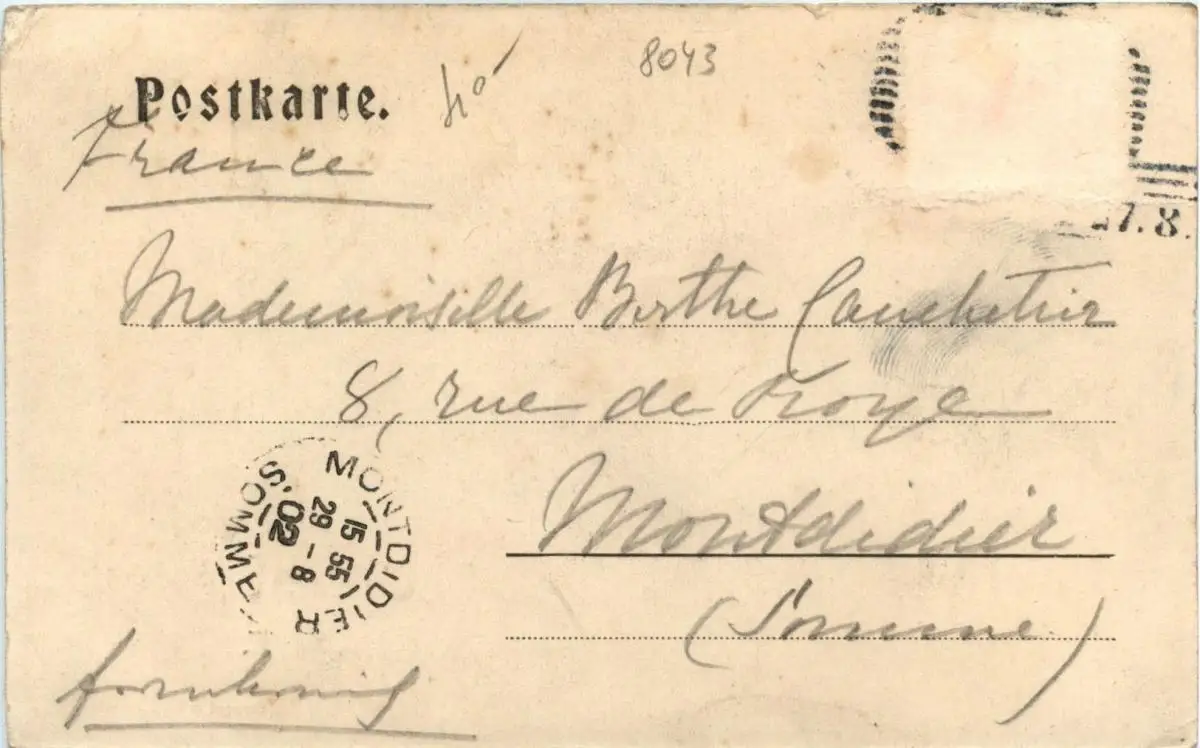 8043
Postkarte.
France
27.8.
Mademoiselle Berthe
8, rue de Roye
Montdidier
(Somme)
MONTDIDIER
15 55
29 - 8
02
SOMME